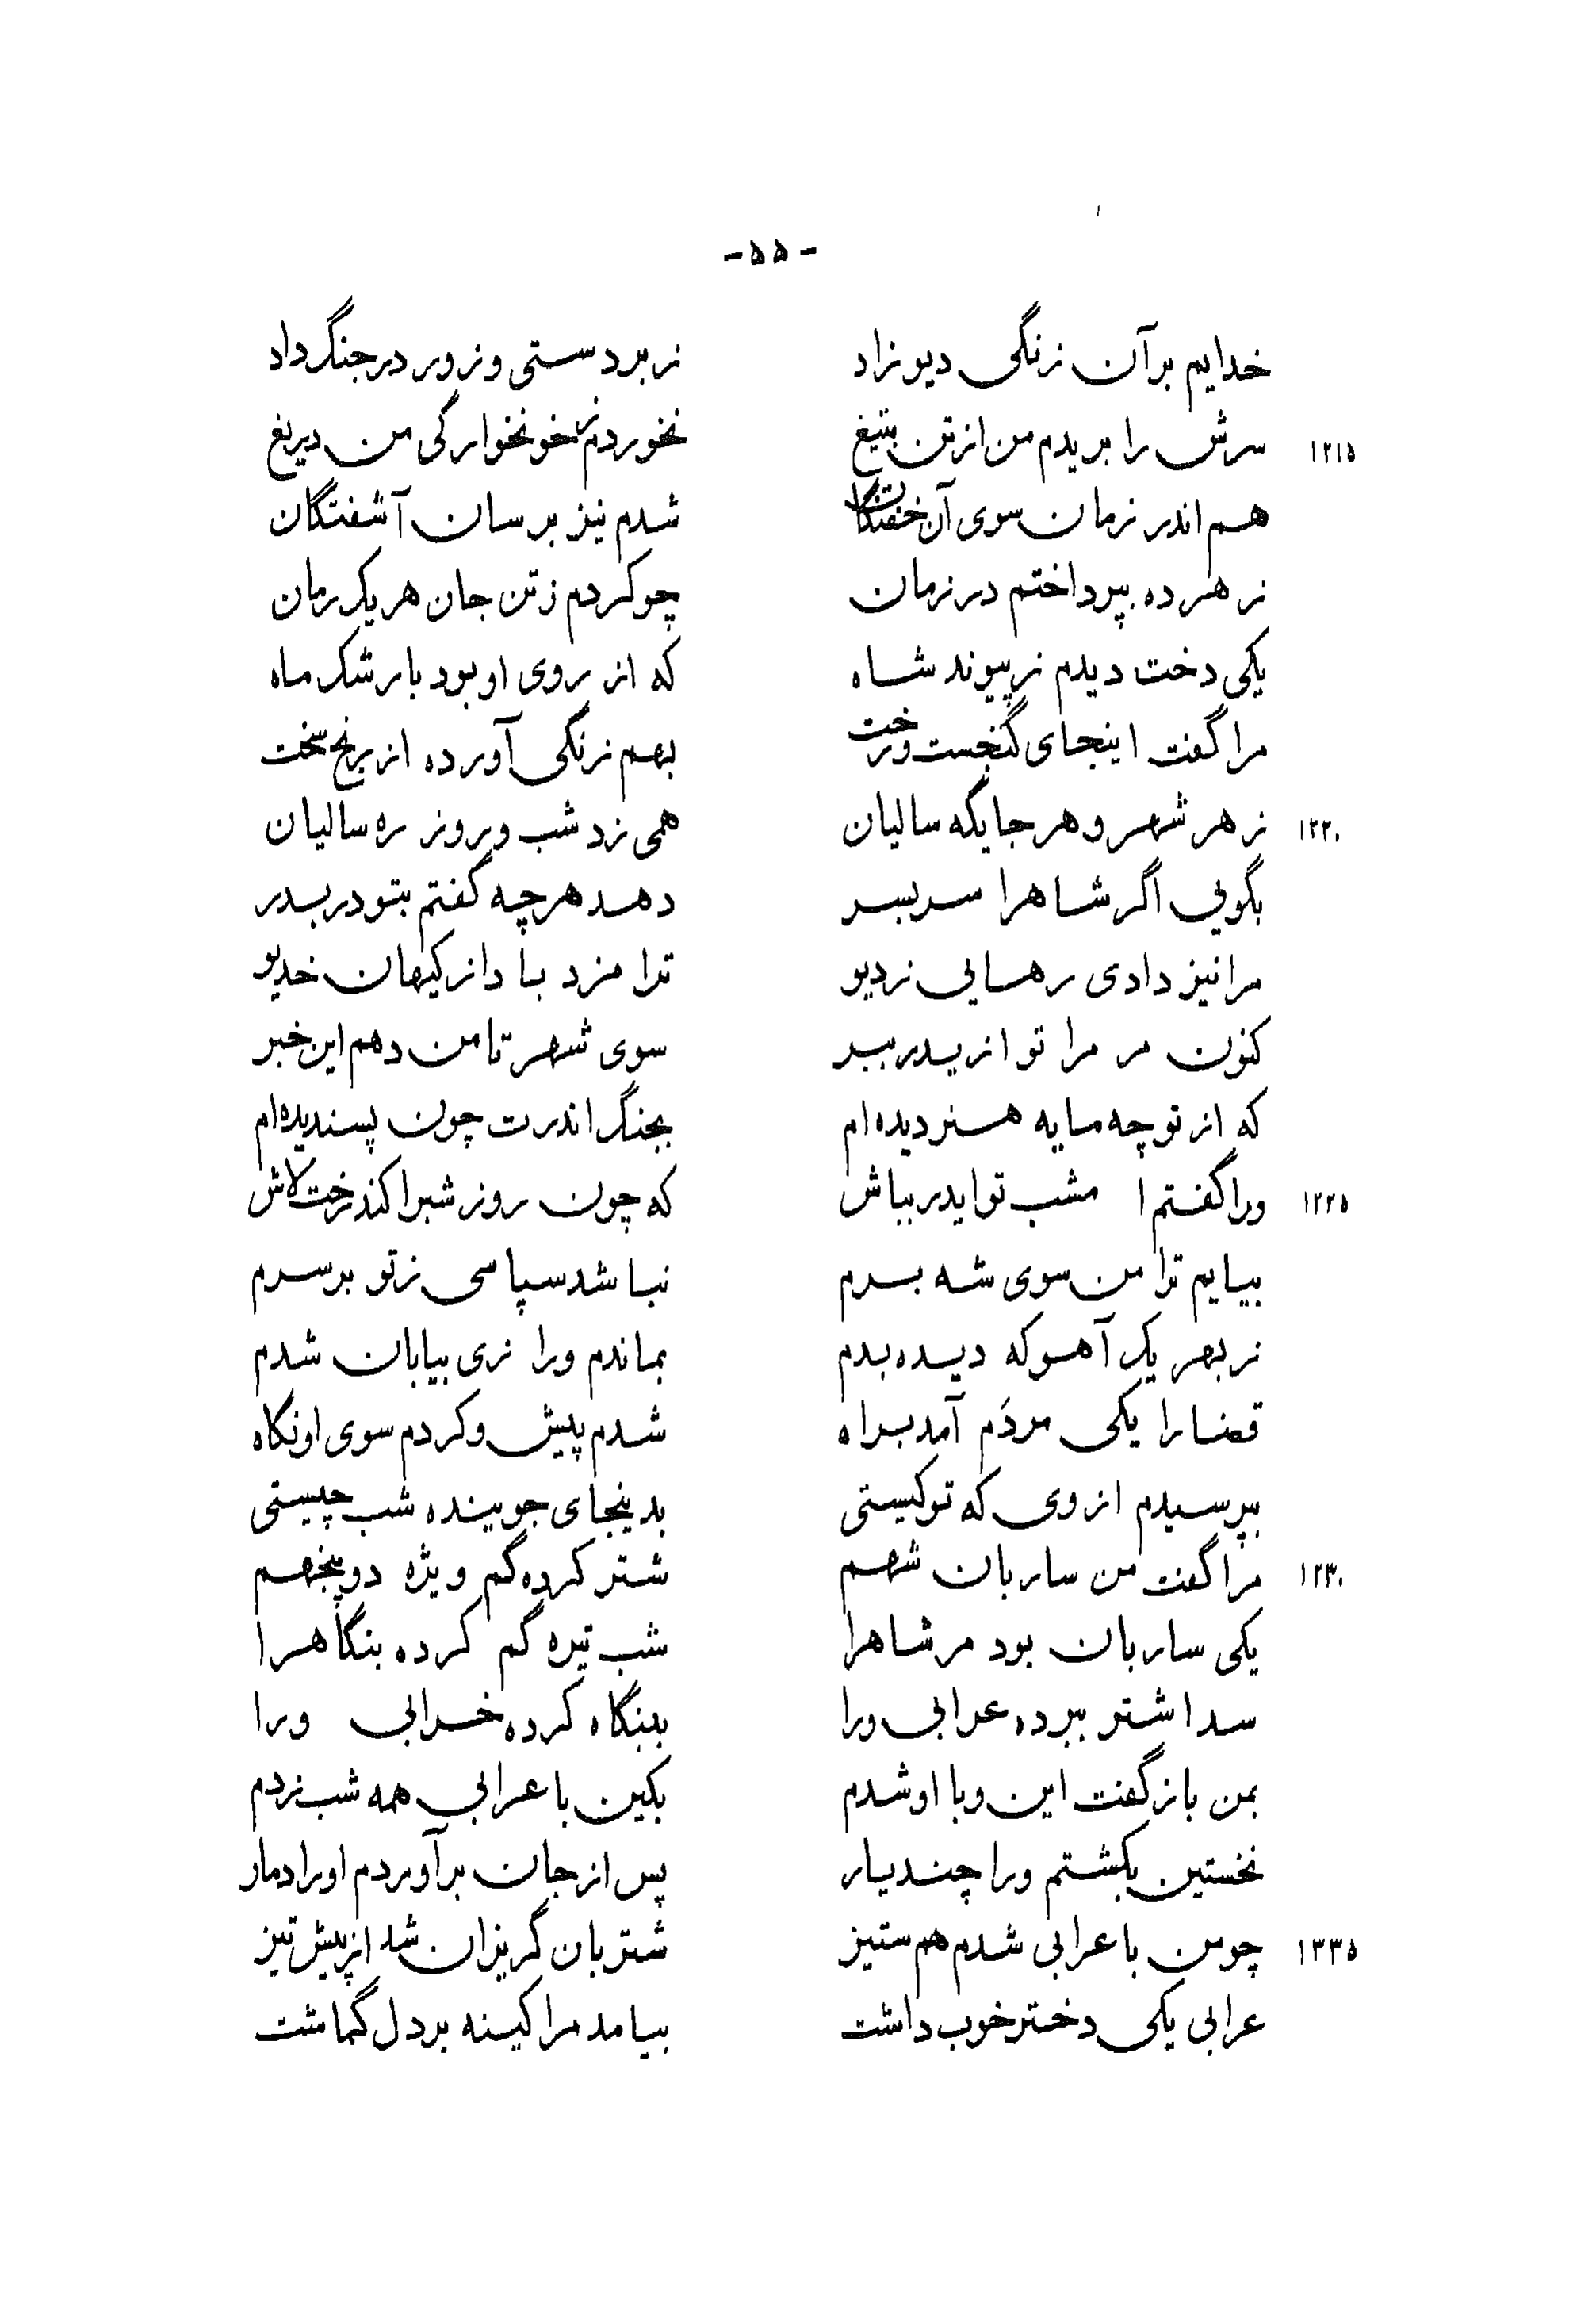 -۵۵-
خدایم بر آن زنگی دیو زاد زبردستی و زور در جنگ داد
۱۲۱۵ سرش را بریدم من از تن بتیغ نخوردم ز خونخوارگی من دریغ
هم اندر زمان سوی آن خفتگان شدم نیز برسان آشفتگان
ز هر ده بپرداختم در زمان چو کردم ز تن جان هریک رمان
یکی دخت دیدم ز پیوند شاه که از روی او بود با رشک ماه
مرا گفت اینجای گنجست و رخت بهم زنگی آورده از رنج سخت
۱۲۲۰ ز هر شهر و هر جایگه سالیان همی زد شب و روز ره سالیان
بگویی اگر شاهرا سربسر دهد هرچه گفتم بتو دربدر
مرا نیز دادی رهایی ز دیو ترا مزد باد از کیهان خدیو
کنون مر مرا تو از یدر ببر سوی شهر تا من دهم این خبر
که از تو چه مایه هنر دیده‌ام بجنگ اندرت چون پسندیده‌ام
۱۲۲۵ ورا گفتم امشب تو ایدر بباش که چون روز شبرا کند رخت لاش
بیایم ترا من سوی شه برم نباشد سپاسی ز تو بر سرم
ز بهر یک آهو که دیده بدم بماندم ورا زی بیابان شدم
قضا را یکی مردم آمد براه شدم پیش و کردم سوی او نگاه
بپرسیدم از وی که تو کیستی بدینجای جوینده شب چیستی
۱۲۳۰ مرا گفت من ساربان شهم شتر کرده گم ویژه دو پنجهم
یکی ساربان بود مر شاهرا شب تیره گم کرده بنگاهرا
سدا شتر ببرده عرابی ورا ببنگاه کرده خرابی ورا
بمن باز گفت این و با او شدم بکین با عرابی همه شب زدم
نخستین بکشتم ورا چند یار پس از جان برآوردم او را دمار
۱۳۳۵ چو من با عرابی شدم هم ستیز شتربان گریزان شد از پیش تیز
عرابی یکی دختر خوب داشت بیامد مرا کینه بر دل گماشت